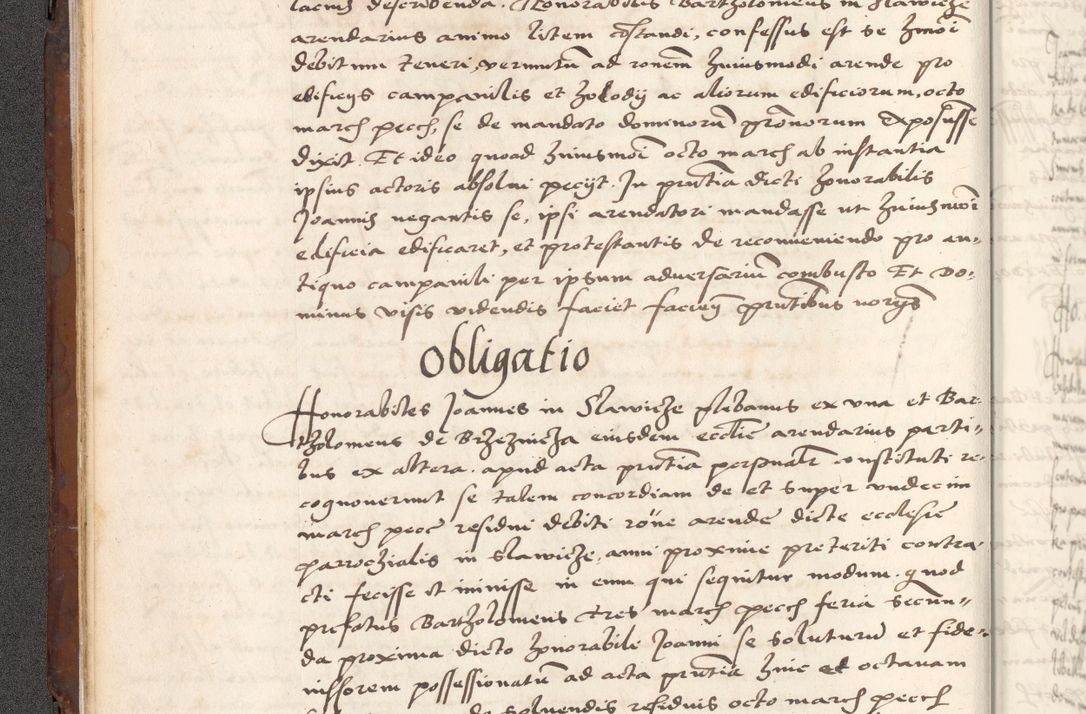 laciis describenda. Honorabilis Bartholomeus in Slawicze
arendarius animo litem cōstandi, confessus est se hmōi
debitum teneri, vermutū ad ronem huiusmodi arende pro
edificijs campanilis et zolodij ac aliorum edificiorum, octo
march pecch, se de mandato dominorū grōnorum exposusse
dixit. Et ideo quoad huiusmōi octo march ab instantia
ipsius actoris absolui pecijt. In pntia dicti honorabilis
Joannis negantis se, ipsi arendatori mandasse ut huiusmōi
edificia edificaret, et protestantis de reconueniendo pro an-
tiquo campanili per ipsum aduersariū combusto Et Do-
minus visis videndis faciet faciēn pntibus uorgs
Obligatio
Honorabiles Joannes in Slawicze plebanus ex vna et Bar-
tholomeus de Brzeznicza eiusdem ecclie arendarius parti-
bus ex altera. apud acta pntia personalr constituti re-
cognouerunt se talem concordiam de et super vndecim
march pecc residui debiti rone arende dicte ecclesie
parrochialis in Slawicze, anni proxime preteriti contra-
cti fecisse et iniuisse in eum qui sequitur modum. quod
prefatus Bartholomeus tres march pecch feria secun-
da proxima dicto honorabili Joanni se soluturū et fide-
iussorem possessionatū ad acta pntia hinc et octauam
de soluendis residuis octo march pecch